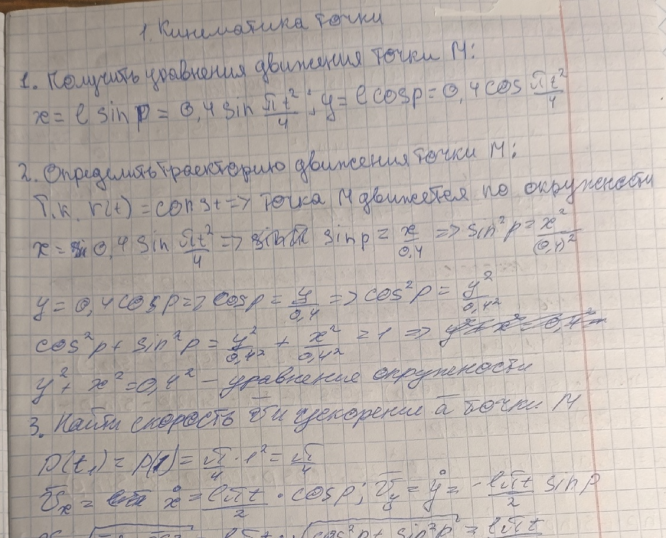 1. Кинематика точки
1. Получить уравнения движения точки M:
x = l sin p = 0,4 sin πt²/4; y = l cos p = 0,4 cos πt²/4
2. Определить траекторию движения точки M:
Т.к. r(t) = const => точка M движется по окружности
x = 0,4 sin πt²/4 => sin p = x/0,4 => sin²p = x²/(0,4)²
y = 0,4 cos p => cos p = y/0,4 => cos²p = y²/0,4²
cos²p + sin²p = y²/0,4² + x²/0,4² = 1 =>
y² + x² = 0,4² – уравнение окружности
3. Найти скорость v̄ и ускорение ā точки M
p(t₁) = p(1) = π/4 · 1² = π/4
v̄x = ẋ = lπt/2 · cos p; v̄y = ẏ = -lπt/2 sin p
cos²p + sin²p = lπt